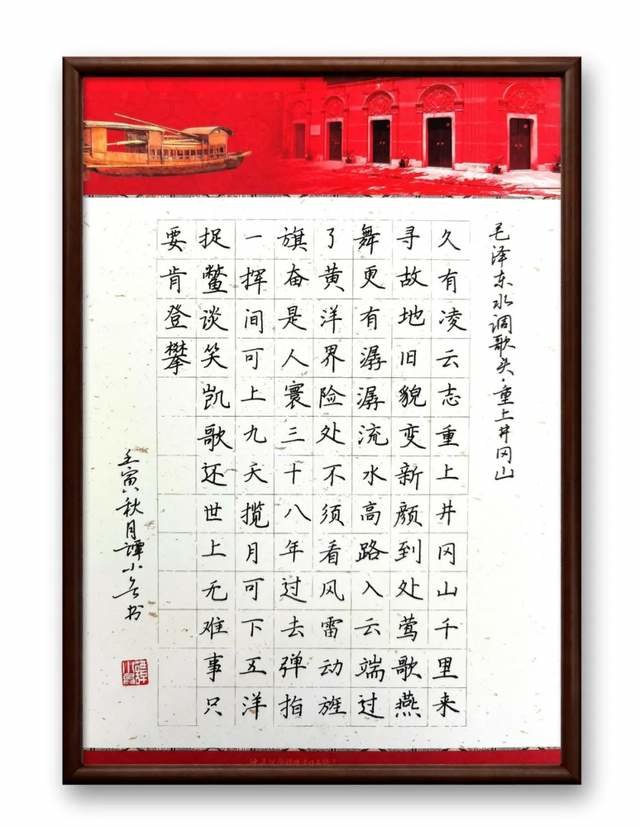 毛泽东水调歌头·重上井冈山
久有凌云志重上井冈山千里来
寻故地旧貌变新颜到处莺歌燕
舞更有潺潺流水高路入云端过
了黄洋界险处不须看风雷动旌
旗奋是人寰三十八年过去弹指
一挥间可上九天揽月可下五洋
捉鳖谈笑凯歌还世上无难事只
要肯登攀
壬寅秋月谭小书